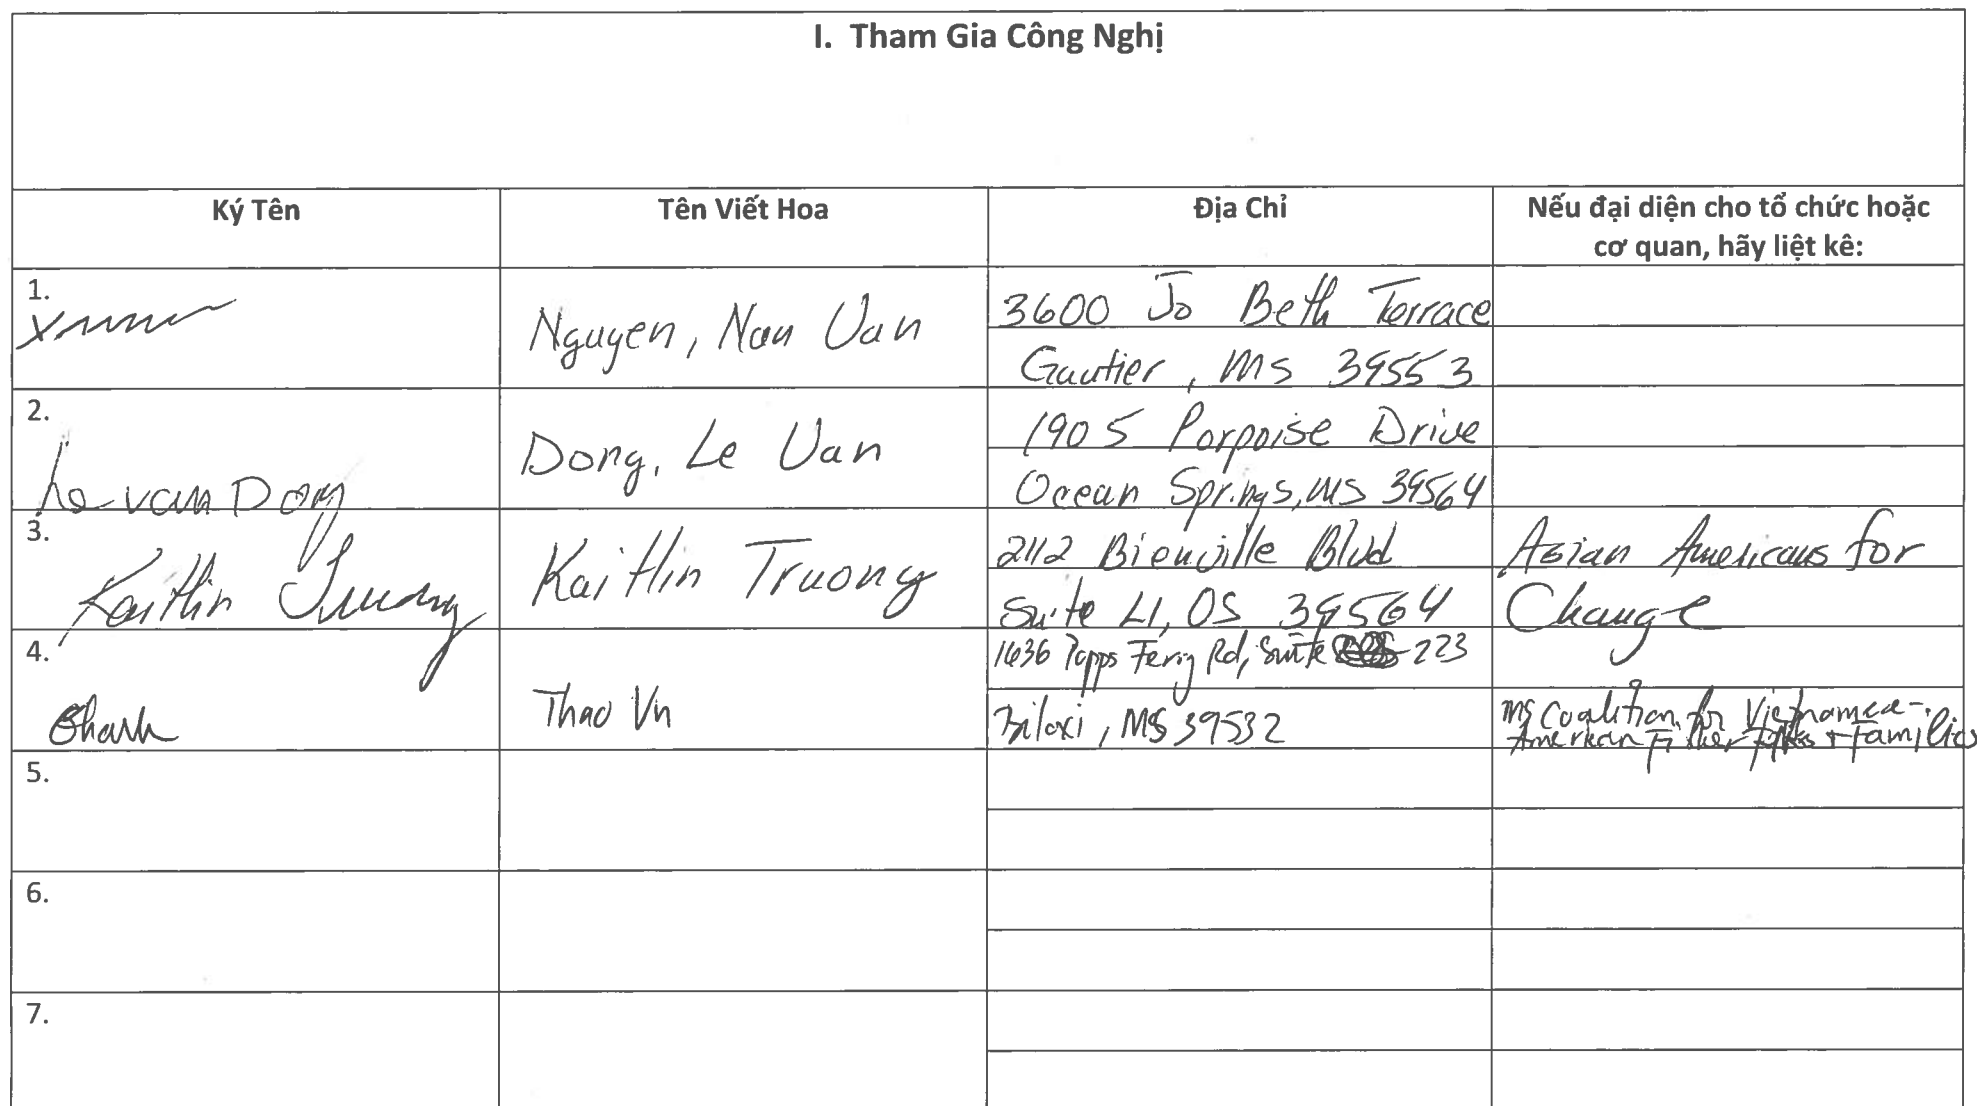 I. Tham Gia Công Nghị
Ký Tên
Tên Viết Hoa
Địa Chỉ
Nếu đại diện cho tổ chức hoặc
cơ quan, hãy liệt kê:
1.
Nguyen, Nan Van
3600 Jo Beth Terrace
Gautier, MS 39553
2.
Le Van Dong
Dong, Le Van
1905 Porpoise Drive
Ocean Springs, MS 39564
3.
Kaitlin Truong
Kaitlin Truong
2112 Bienville Blvd
Suite L1, OS 39564
Asian Americans for
Change
4.
Thao Vu
1636 Popps Ferry Rd, Suite 223
Biloxi, MS 39532
MS Coalition for Vietnamese-
American Fisher Folks + Families
5.
6.
7.